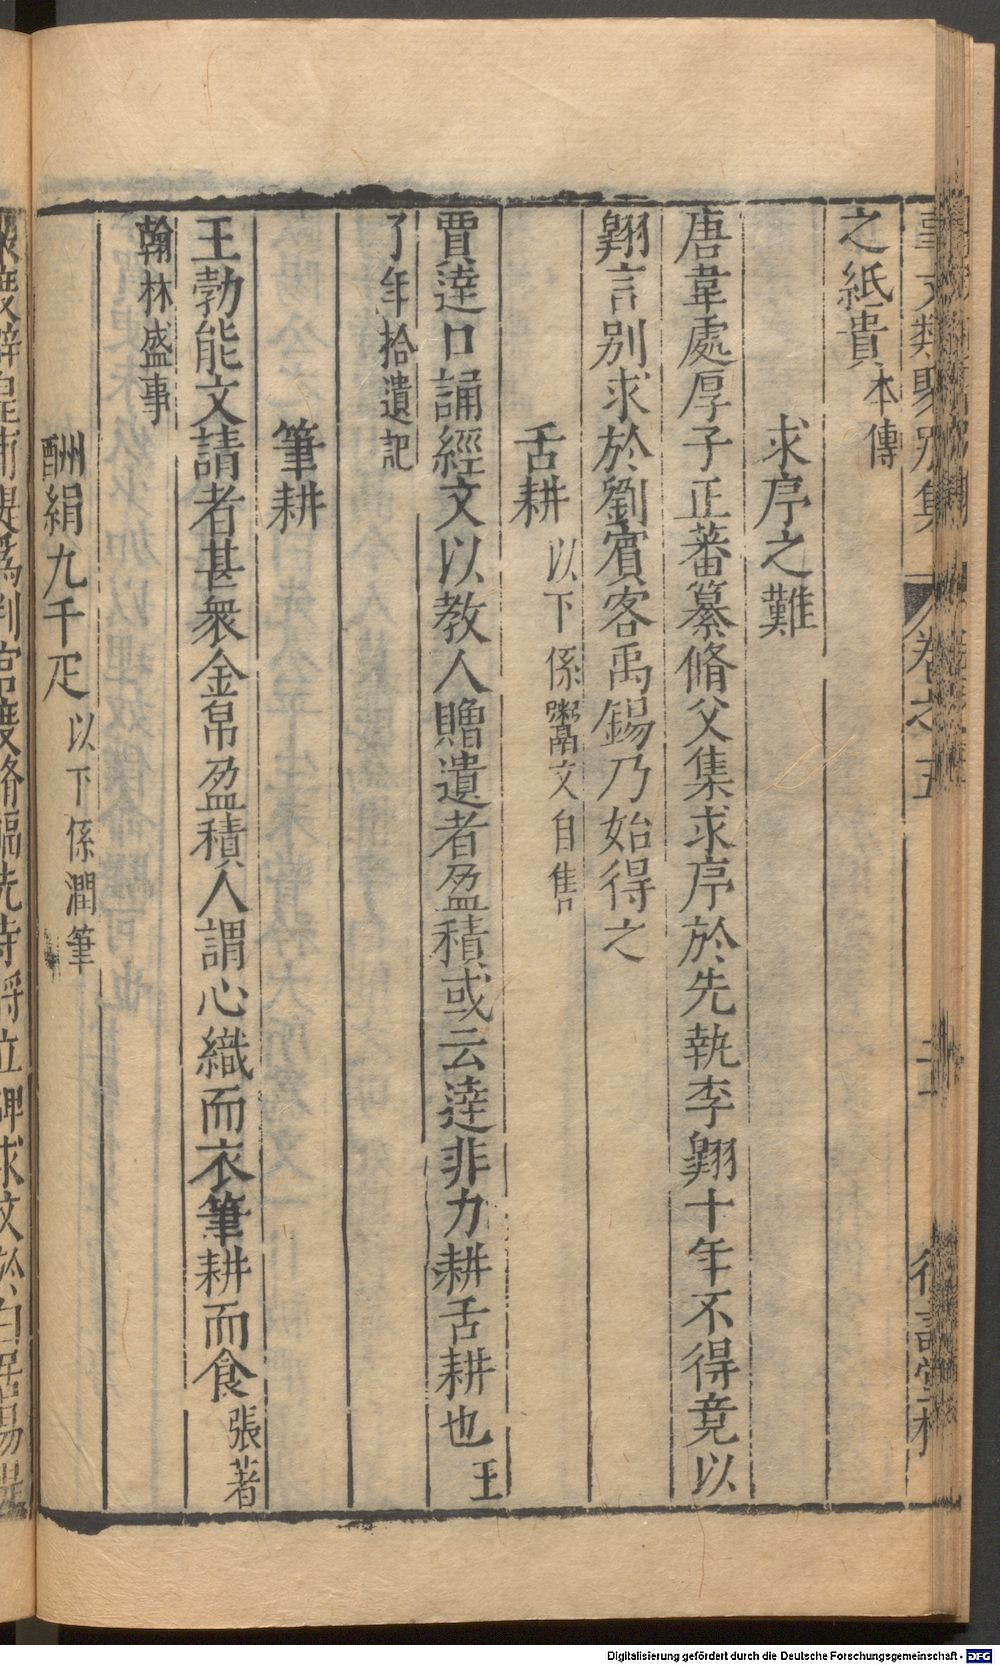 事文類聚別集 卷之五
之紙貴本傳
求序之難
唐韋處厚子正蕃纂脩父集求序於先執李翺十年不得竟以
翺言別求於劉賓客禹錫乃始得之
舌耕 以下係鬻文自售
賈逵口誦經文以教人贈遺者盈積或云逵非力耕舌耕也王
了年拾遺記
筆耕
王勃能文請者甚衆金帛盈積人謂心織而衣筆耕而食張著
翰林盛事
酬絹九千疋 以下係潤筆
Digitalisierung gefördert durch die Deutsche Forschungsgemeinschaft - DFG